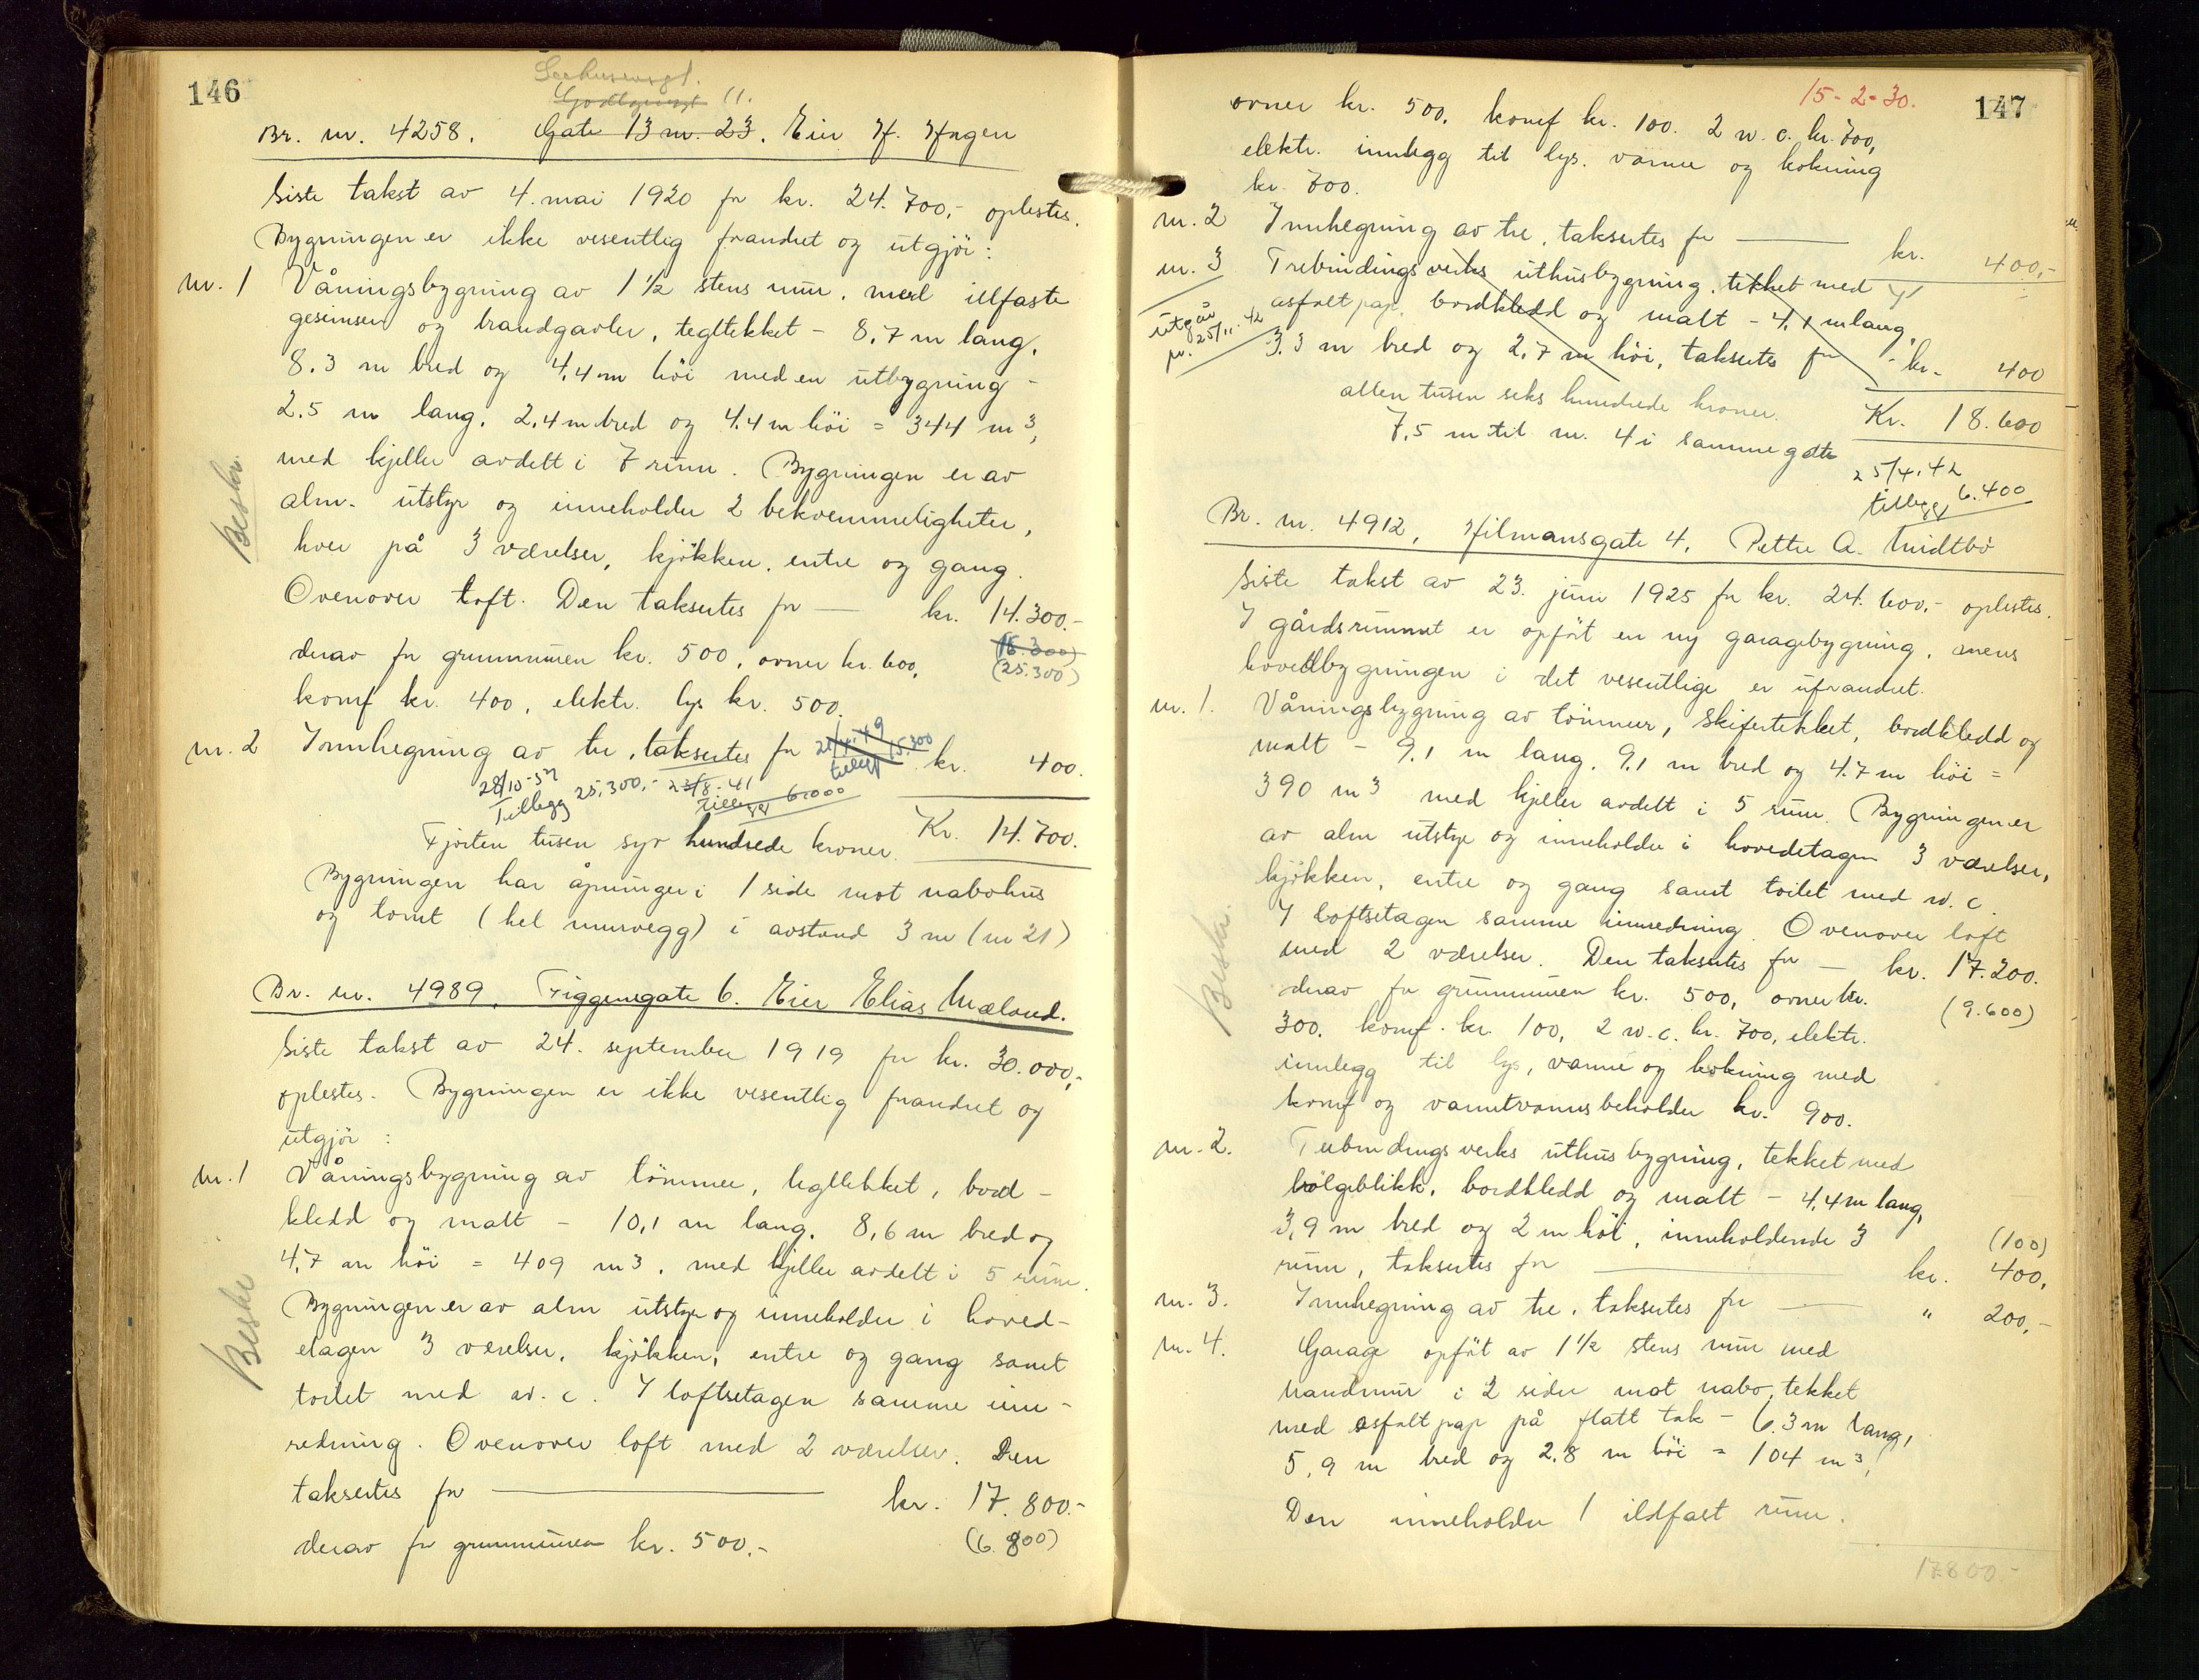 146
11.
Br. nr. 4258. Gate 13 nr. 23. Eier H. Hagen
Siste takst av 4. mai 1920 for kr. 24.700,- oplestes.
Bygningen er ikke vesentlig forandret og utgjør:
nr. 1 Våningsbygning av 1 1/2 stens mur, med ildfaste
gesimser og brandgavler, tegltekket - 8,7 m lang,
8.3 m bred og 4,4 m höi med en utbygning -
2.5 m lang, 2,4 m bred og 4.4 m höi = 344 m3,
med kjeller avdelt i 7 rum. Bygningen er av
Beskr.
alm. utstyr og inneholder 2 bekvemmeligheter,
hver på 3 værelser, kjökken, entre og gang.
Ovenover loft. Den taksertes for — kr. 14.300.-
(18.300)
derav for grunnmuren kr. 500, ovner kr. 600,
(25.300)
komf kr. 400, elektr. lys kr. 500.
nr. 2 Innhegning av tre, taksertes for — kr. 400.
tillegg 15.300
28/10-52 Tillegg 25.300,- 23/8-41 Tillegg 6.000
Fjorten tusen syv hundrede kroner. Kr. 14.700.
Bygningen har åpninger i 1 side mot nabohus
og tomt (hel murvegg) i avstand 3 m (nr 21)
Br. nr. 4989. Figgenegate 6. Eier Elias Mæland.
Siste takst av 24. september 1919 for kr. 30.000,-
oplestes. Bygningen er ikke vesentlig forandret og
utgjør :
nr. 1 Våningsbygning av tömmer, tegltekket, bord-
kledd og malt - 10,1 m lang, 8,6 m bred og
4,7 m höi = 409 m3, med kjeller avdelt i 5 rum.
Beskr
Bygningen er av alm utstyr og inneholder i hoved-
etagen 3 værelser, kjökken, entre og gang samt
toilet med w. c. I loftsetagen samme inn-
redning. Ovenover loft med 2 værelser. Den
taksertes for — kr. 17.800.-
derav for grunnmuren kr. 500.- (6.800)
15-2-30.
147
ovner kr. 500, komf kr. 100. 2 w. c. kr. 700,
elektr. innlegg til lys, varme og kokning
kr. 700.
nr. 2 Innhegning av tre, taksertes for — kr. 400,-
nr. 3 Trebindingsverks uthusbygning, tekket med
asfaltpap, bordkledd og malt - 4,1 m lang,
utgår
25/11.42
3,3 m bred og 2,7 m höi, taksertes for - kr. 400
atten tusen seks hundrede kroner. Kr. 18.600
7,5 m til nr. 4 i samme gate
25/4.42
tillegg 6.400
Br. nr. 4912, Hilmansgate 4, Petter A. Midtbö
Siste takst av 23. juni 1925 for kr. 24.600,- oplestes.
I gårdsrummet er opfört en ny garagebygning, mens
hovedbygningen i det vesentlige er uforandret.
nr. 1. Våningsbygning av tömmer, skifertekket, bordkledd og
malt - 9,1 m lang, 9,1 m bred og 4.7 m höi =
390 m3 med kjeller avdelt i 5 rum. Bygningen er
av alm utstyr og inneholder i hovedetagen 3 værelser,
kjökken, entre og gang samt toilet med w. c.
Beskr.
I loftsetagen samme innredning. Ovenover loft
med 2 værelser. Den taksertes for — kr. 17.200.
derav for grunnmuren kr. 500, ovner kr. (9.600)
300. komf. kr. 100, 2 w.c. kr. 700, elektr.
innlegg til lys, varme og kokning med
komf og varmtvannsbeholder kr. 900.
nr. 2. Trebindingsverks uthusbygning, tekket med
bölgeblikk, bordkledd og malt - 4,4 m lang,
3,9 m bred og 2 m höi, inneholdende 3 (100)
rum, taksertes for — kr. 400,
nr. 3. Innhegning av tre, taksertes for — " 200,-
nr. 4. Garage opfört av 1 1/2 stens mur med
brandmur i 2 sider mot nabo, tekket
med asfaltpap på flatt tak - 6.3 m lang,
5,9 m bred og 2,8 m höi = 104 m3,
Den inneholder 1 ildfast rum.
17800.-